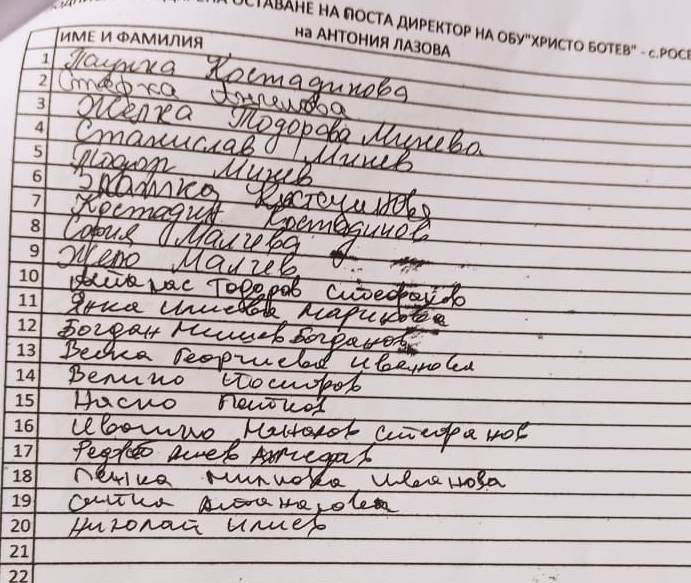 ОСТАВАНЕ НА ПОСТА ДИРЕКТОР НА ОБУ"ХРИСТО БОТЕВ" - с.РОСЕ
на АНТОНИЯ ЛАЗОВА
ИМЕ И ФАМИЛИЯ
1 Пауна Костадинова
2 Стефка Ангелова
3 Желка Тодорова Минева
4 Станислав Минев
5 Тодор Минев
6 Златка Костадинова
7 Костадин Костадинов
8 София Малчева
9 Желю Малчев
10 Атанас Тодоров Стефанов
11 Янка Илиева Маринова
12 Богдан Богданов
13 Велка Георгиева Иванова
14 Велико
15 Наско
16 Ивайло Стефанов
17
18 Пенка Минкова Иванова
19 Атанасова
20 Николай Илиев
21
22